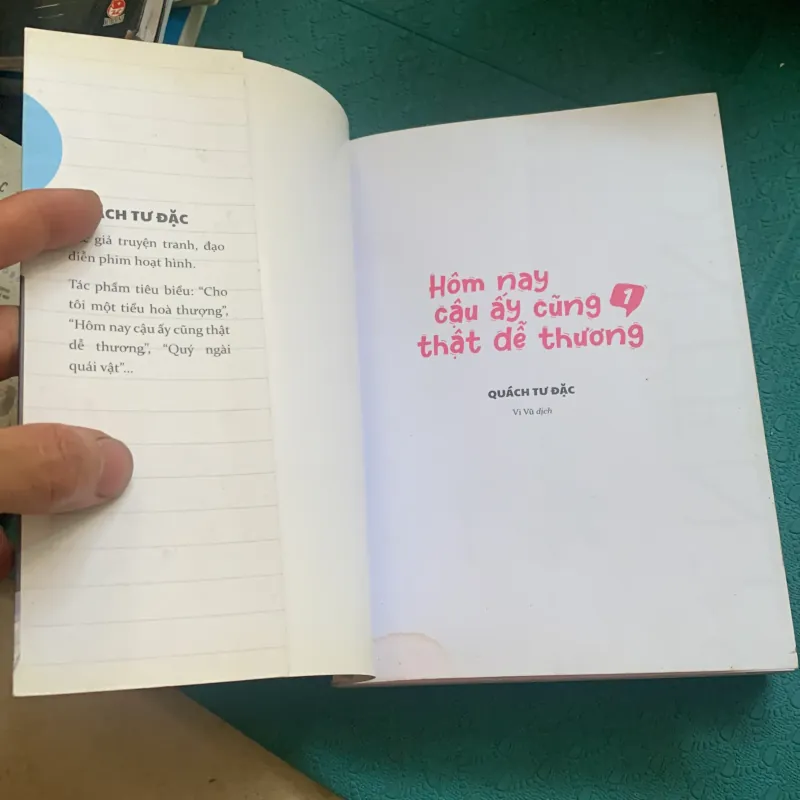 ÁCH TƯ ĐẶC
giả truyện tranh, đạo
diễn phim hoạt hình.
Tác phẩm tiêu biểu: “Cho
tôi một tiểu hoà thượng”,
“Hôm nay cậu ấy cũng thật
dễ thương”, “Quý ngài
quái vật”...
Hôm nay
cậu ấy cũng 1
thật dễ thương
QUÁCH TƯ ĐẶC
Vi Vũ dịch